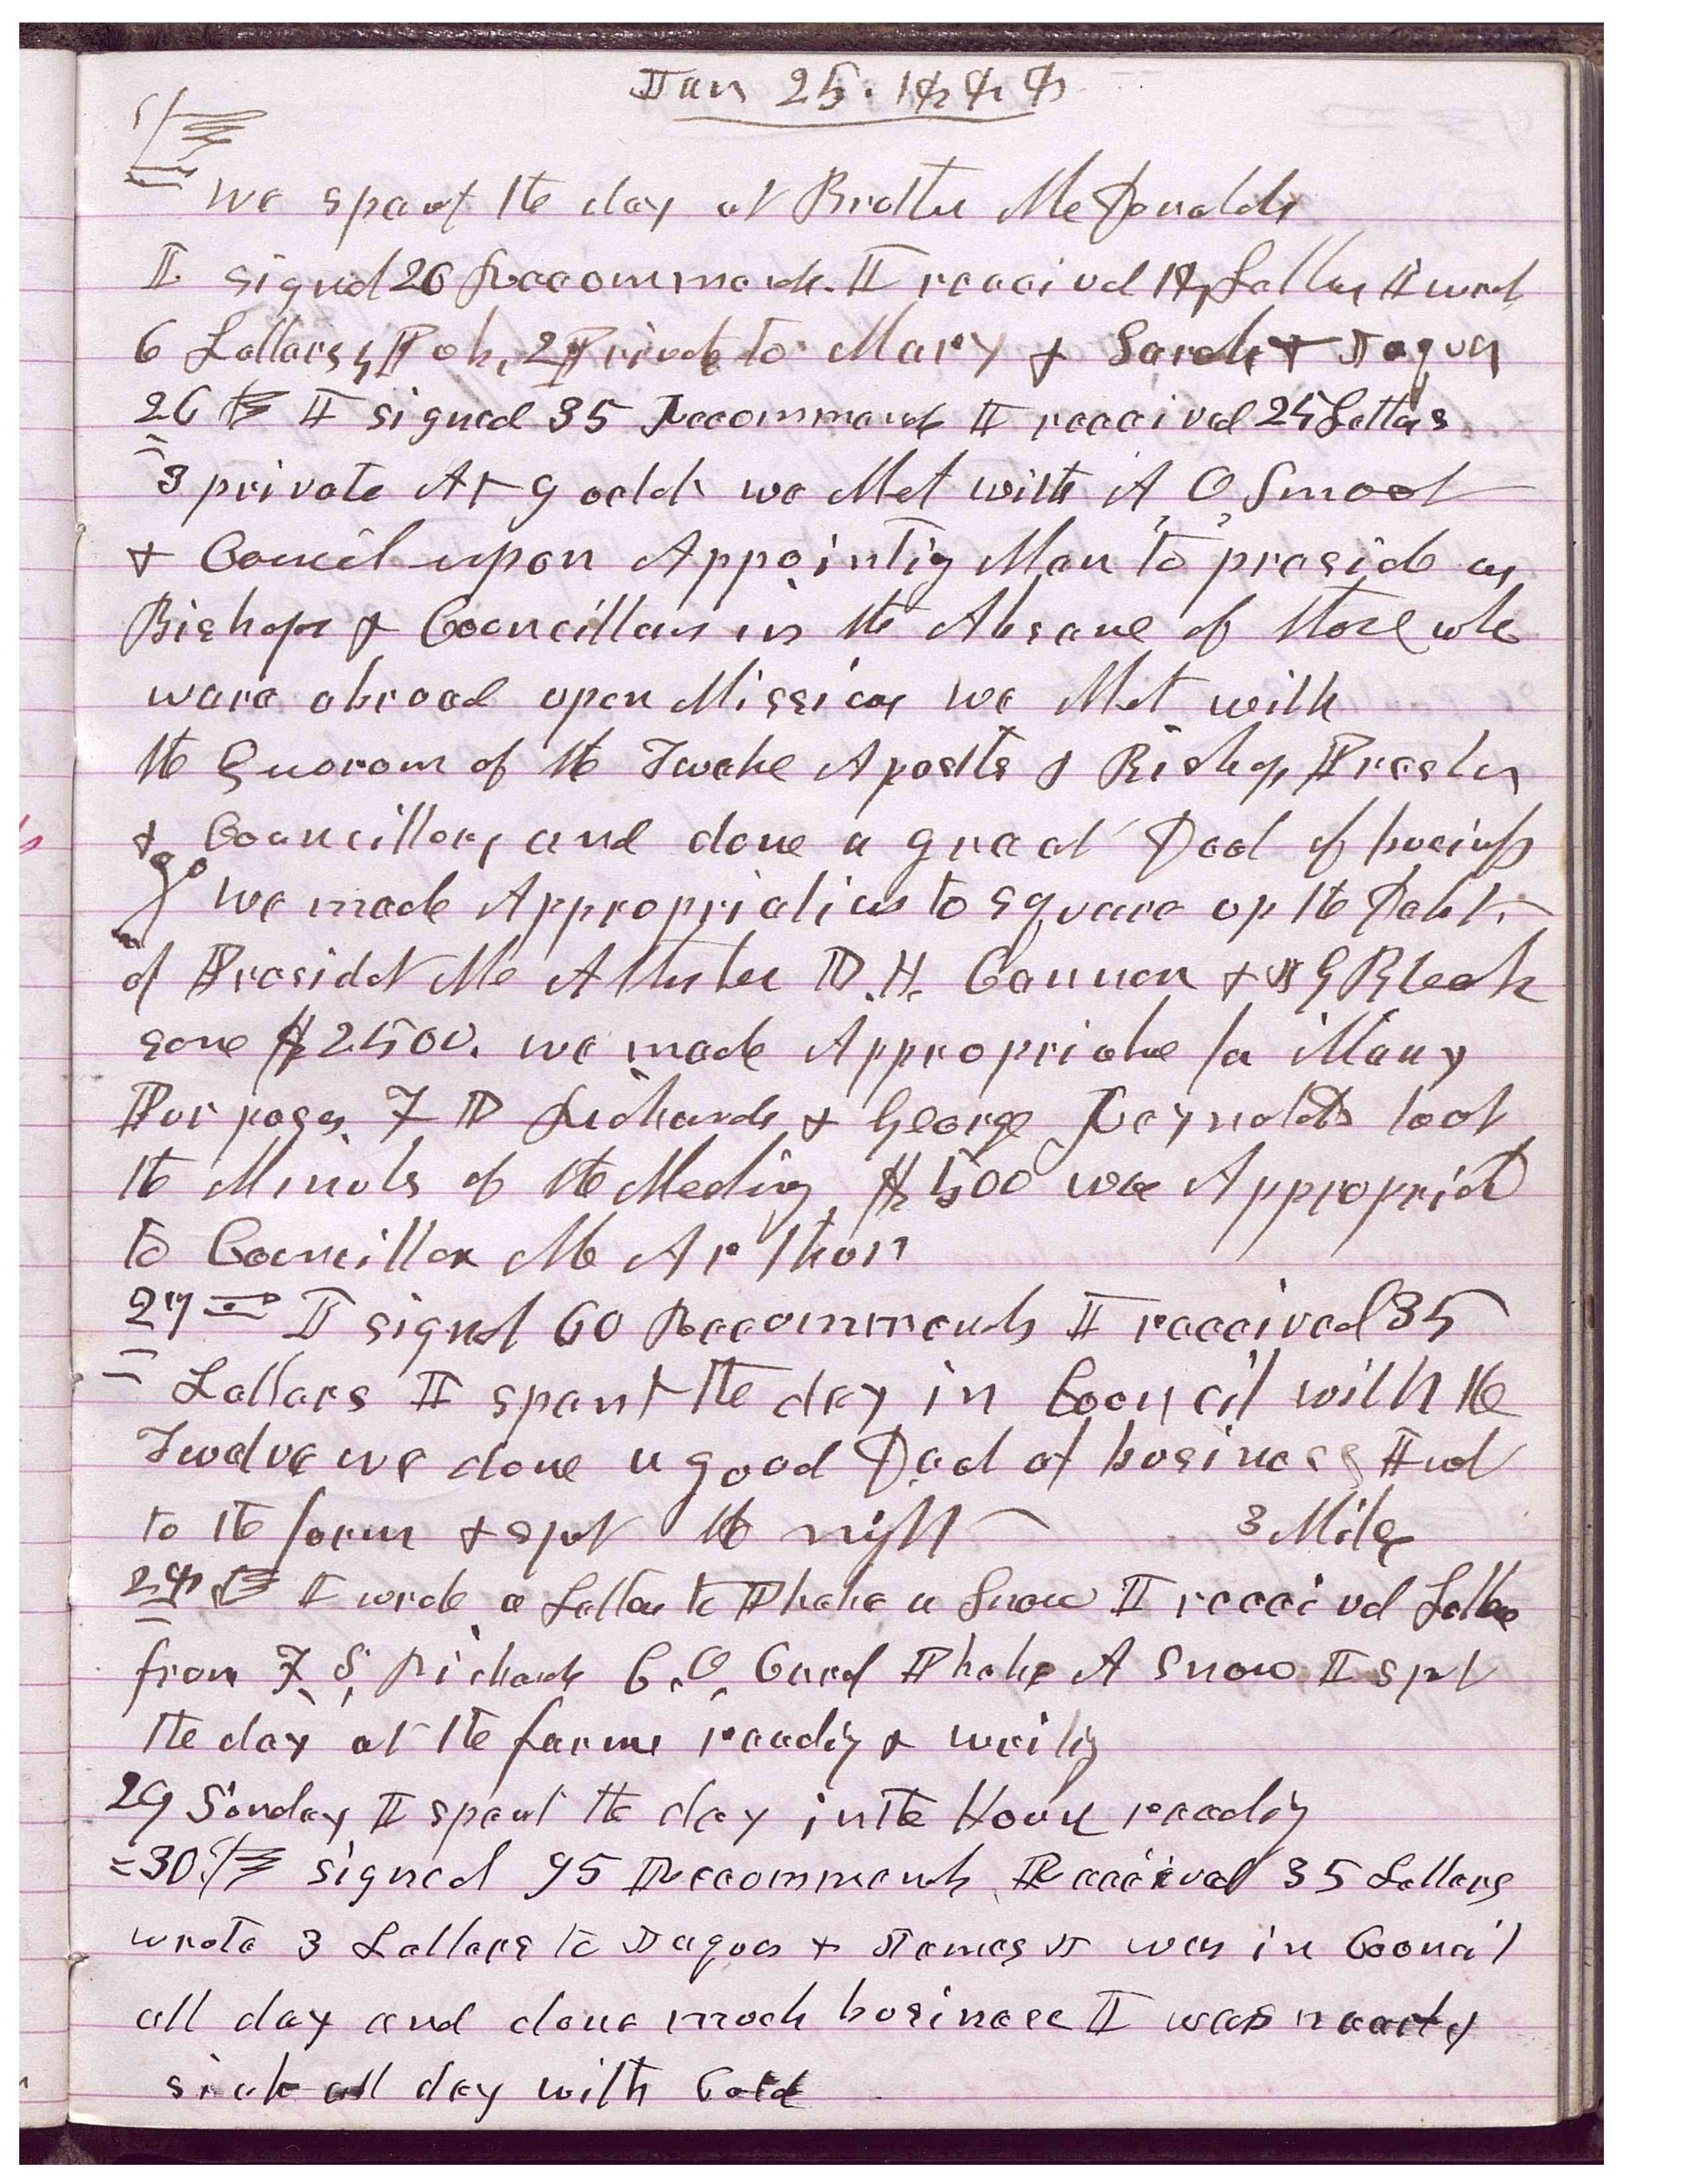 Jan 25. 1888
we spent the day at Brother McDonalds
I signed 26 Recommends. I received 18 Letters I wrot
6 Letters, Pok, 2 Private to Mary & Sarah & Jaques
26th I signed 35 Recommends I received 25 Letters
3 private At 9 oclok we Met with A, O, Smoot
& Council upon Appointig Men to preside as
Bishops & Councillors in the Absane of those who
ware abroad upon Missions we Met with
the Quorom of the Twelve Apostls & Bishop Preston
& Councillors, and done a great Deal of buisness
we made Appropriations to square up the Debts
of Presidet Mc Allister D. H. Cannon & J G Bleak
some $2500. we made Appropriatins for Many
Purposes. F D Richards & George Reynolds took
the Minuts of the Meeting $500 was Appropriatd
to Councillor Mc Arthor
27 I signed 60 Recommends I received 35
Letters I spent the day in Council with the
Twelve we done a good Deal of business I rod
to the farm & spnt the night 3 Miles
28th I wrote a Letter to Phebe A Snow I received Letters
from F. S. Richards C. O. Card Phebe A Snow I spnt
the day at the farm readig & writig
29 Sunday I spent the day in the House readig
30th signed 95 Recommends Received 35 Letters
wrote 3 Letters to Jaques & James J was in Council
all day and done much business I was nearly
sick all day with Cold